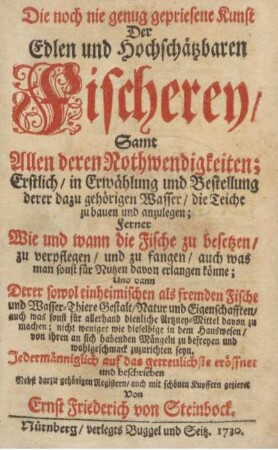 Die noch nie genug gepriesene Kunst
Der
Edlen und Hochschätzbaren
Fischerey/
Samt
Allen deren Nothwendigkeiten;
Erstlich/ in Erwählung und Bestellung
derer dazu gehörigen Wasser/ die Teiche
zu bauen und anzulegen;
Ferner
Wie und wann die Fische zu besetzen/
zu verpflegen/ und zu fangen/ auch was
man sonst für Nutzen davon erlangen könne;
Und dann
Derer sowol einheimischen als fremden Fische
und Wasser-Thiere Gestalt/ Natur und Eigenschafften/
auch was sonst für allerhand dienliche Artzney-Mittel davon zu
machen; nicht weniger wie dieselbige in dem Hauswesen/
von ihren an sich habenden Mängeln zu befreyen und
wohlgeschmack zuzurichten seyn,
Jedermänniglich auf das getreulichste eröffnet
und beschrieben
Nebst darzu gehörigen Registern/ auch mit schönen Kupffern gezieret
Von
Ernst Friederich von Steinbock.
Nürnberg/ verlegts Buggel und Seitz. 1730.